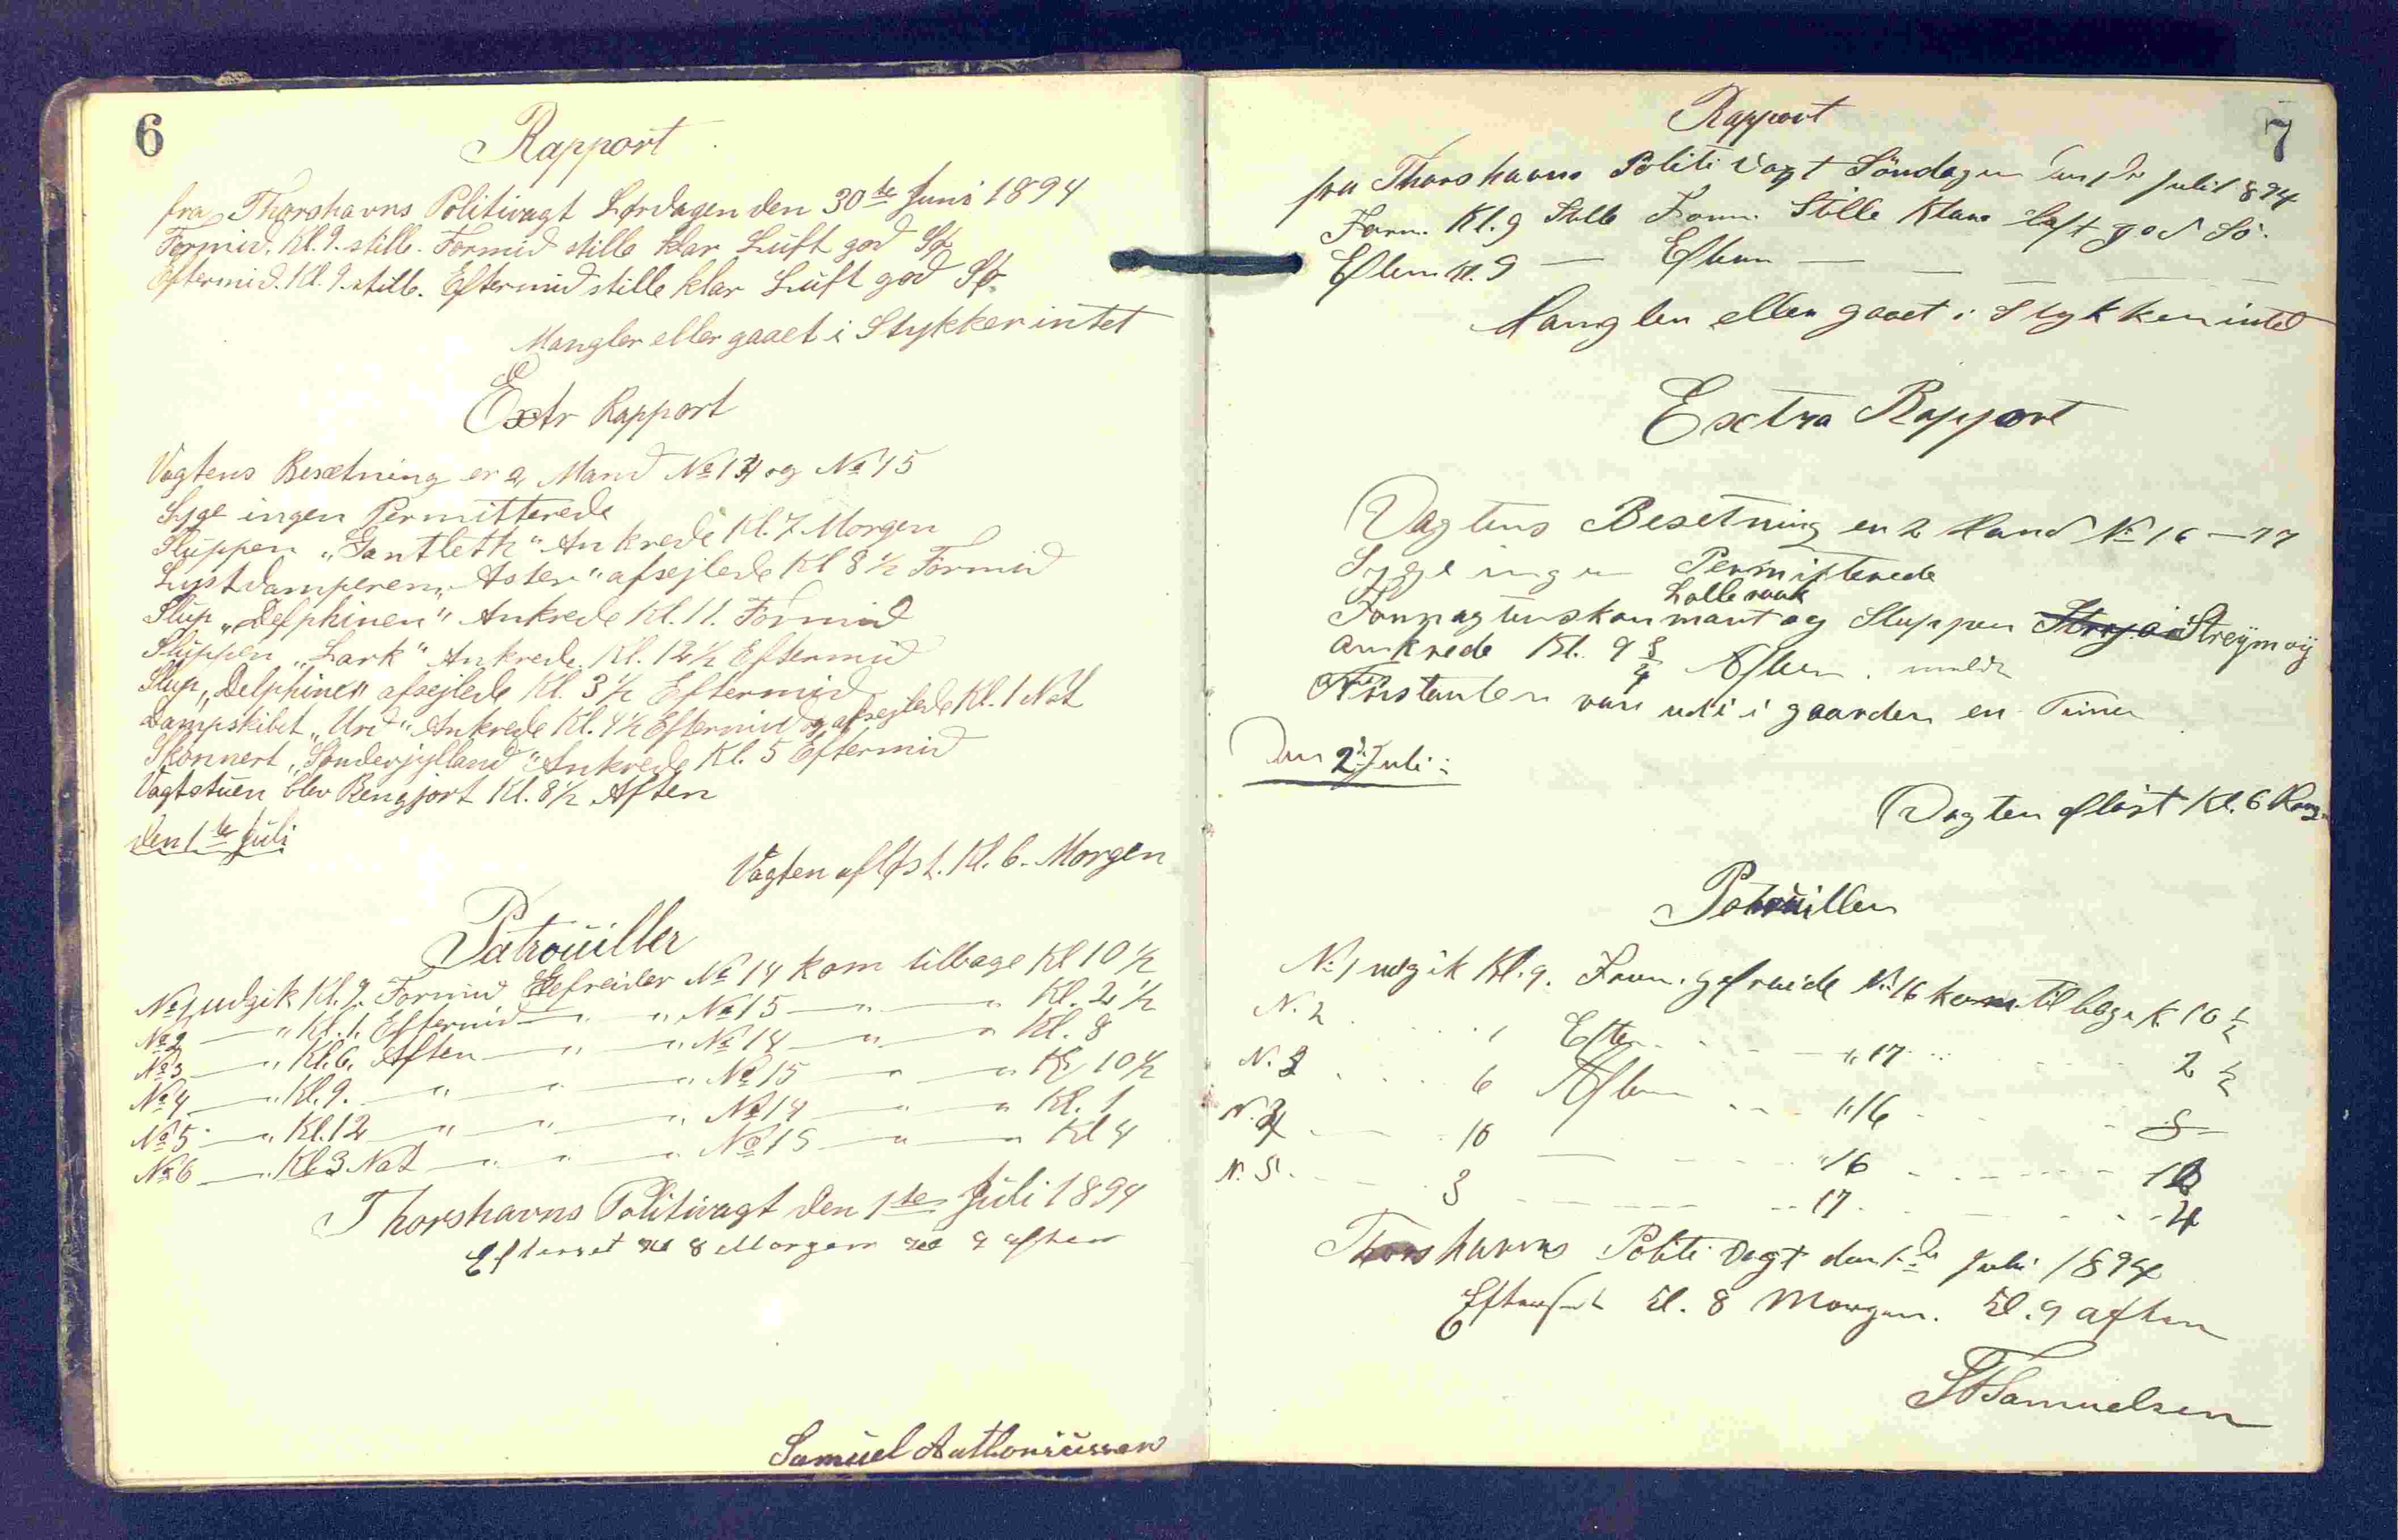 6
Rapport
fra Thorshavns Politivagt Lørdagen den 30te Juni 1894
Formid. Kl. 9. stille. Formid stille klar Luft god Sø
Eftermid. Kl. 9. stille. Eftermid stille klar Luft god Sø
Mangler eller gaaet i Stykker intet
Extr Rapport
Vagtens Besætning er 2 Mand No 14 og No 15
Syge ingen Permitterede
Sluppen „Gantleth" Ankrede Kl. 7 Morgen
Lystdamperen „Aster" afsejlede Kl 8 1/2 Formid
Slup „Delphinen" Ankrede Kl. 11. Formid
Sluppen „Lark" Ankrede Kl. 12 1/2 Eftermid
Slup „Delphinen" afsejlede Kl. 3 1/2 Eftermid
Dampskibet „Urd" Ankrede Kl. 4 1/2 Eftermid og afsejlede Kl. 1 Nat
Skonnert „Sønderjylland" Ankrede Kl. 5 Eftermid
Vagtstuen blev Rengjort Kl. 8 1/2 Aften
den 1te Juli
Vagten afløst. Kl. 6. Morgen
Patrouiller
No 1 udgik Kl. 9. Formid Gefreider No 14 kom tilbage Kl 10 1/2
No 2 — " Kl. 1. Eftermid — " — " No 15 — " — " Kl. 2 1/2
No 3 — " Kl. 6. Aften — " — " No 14 — " — " Kl. 8
No 4 — " Kl. 9. — " — " — " No 15 — " — " Kl. 10 1/2
No 5 — " Kl. 12 — " — " — " No 14 — " — " Kl. 1
No 6 — " Kl. 3 Nat — " — " — " No 15 — " — " Kl 4
Thorshavns Politivagt den 1te Juli 1894
Efterset Kl 8 Morgen Kl 9 aften
Samuel Anthoniussen
7
Rapport
fra Thorshavns Politi Vagt Söndagen den 1de Juli 1894
Form. Kl. 9 Stille Form. Stille Klar Luft god Sö.
Eftem Kl. 9 — Eftem — —
Mangler eller gaaet i Stykker intet
Extra Rapport
Vagtens Besetning er 2 Mand No 16 — 17
Syge ingen Permitterede
Lalle rook
og Sluppen Streÿmoÿ
ankrede Kl. 9 3/4 Aften.
var ude i gaarden en Time
Den 2d Juli:
Vagten aflöst Kl. 6 Morg.
Patrouiller
No 1 udgik Kl. 9. Form. gefreide No 16 kom tilbage K. 10 1/2
N. 2 1 Efter " 17 2 1/2
N. 3 6 Aften " 16 8
N. 4 10 — " 16 12
N. 5. 3 17 4
Thorshavns Politi Vagt den 1de Juli 1894
Efterset Kl. 8 Morgen. Kl. 9 aften
Samuelsen